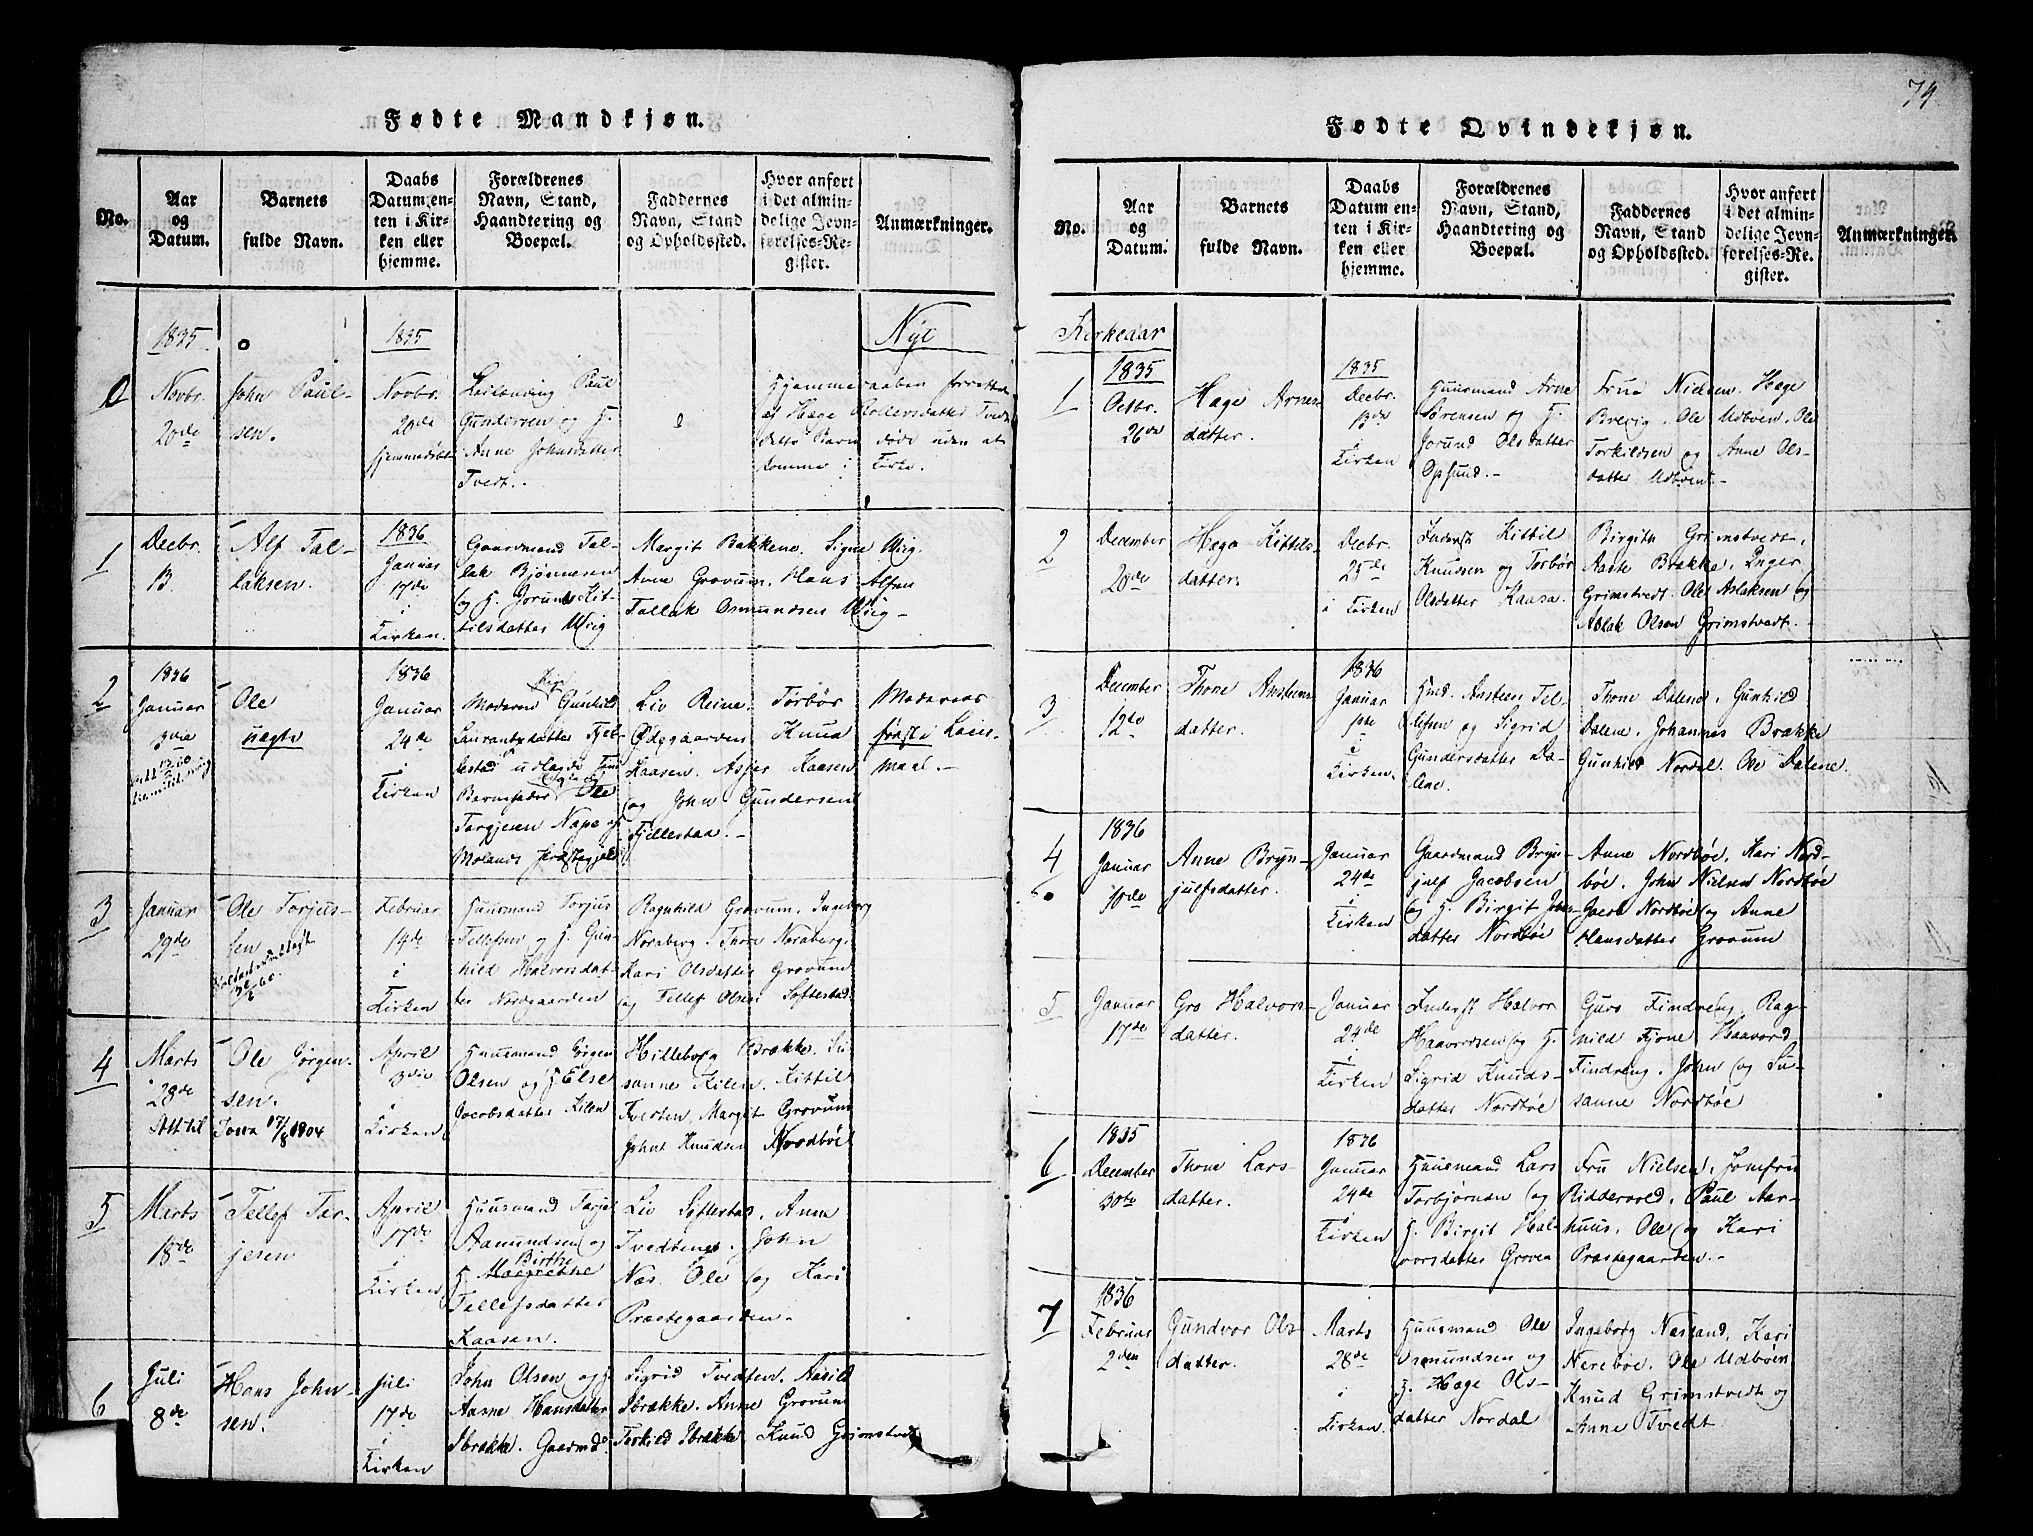 74
Fødte Mandkjøn.
No.
Aar
og
Datum.
Barnets
fulde Navn.
Daabs
Datum, en-
ten i Kir-
ken eller
hjemme.
Forældrenes
Navn, Stand,
Haandtering og
Boepæl.
Faddernes
Navn, Stand
og Opholdssted.
Hvor anført
i det almin-
delige Jevn-
førelses-Re-
gister.
Anmærkninger.
Nyt
0
1835
Novbr.
20de
John Paul-
sen.
1835
Novbr.
20de
hjemmedøbt
Leilending Paul
Gundersen og H.
Anne Johnsdatter
Tvedt.
Hjemmedaaben forrettet
af Hæge Rollevsdatter Tvedt
dette Barn døde uden at
komme i Kirke.
1
Decbr.
13.
Alf Tal-
laksen.
1836
Januar
17de
i
Kirken.
Gaardmand Tal-
lak Bjönnesen
og H. Jorun Kit-
tilsdatter Uleig
Margit Bakkene. Signe Uleig.
Anne Grovum. Hans Alfsen
Tallak Osmundsen Uleig.
2
1836
Januar
3die
Ole
uægte
1836
Januar
24de
i
Kirken
Moderen Pige Gunhild
Laurantsdatter Fjel-
lestad udlagde til
Barnefader Ole
Targjesen Nape af
Molands Præstegjeld
Liv Reine. Torbør
Ødegaarden. Knud
Kaasen. Asjer Kaasen
og John Gundersen
Fjellestad.
Moderens
første Leier-
maal.
3
Januar
29de
Ole Torjus-
sen
Februar
14de
i
Kirken
Huusmand Torjus
Tellefsen og H. Gun-
hild Halvorsdat-
ter Nordgaarden
Ragnhild Grovum. Ingeborg
Noraberg. Thore Noraberg.
Kari Olsdatter Grovum
og Tellef Olsen Søftestad.
4
Marts
28de
Ole Jørgen-
sen.
Att til Iowa 17/8 1904
April
3die
i
Kirken
Huusmand Jörgen
Olsen og H. Else
Jacobsdatter Kilen
Hilleborg Brække. Su-
sanne Kilen. Kittil
Tvedten Margit Grovum
John Knudsen Nordbøe
5
Marts
18de
Tellef Tar-
jesen
April
17de
i
Kirken
Huusmand Tarje
Aamundsen og
Birthe
H. Margrethe
Tellefsdatter
Kaasen.
Liv Søftestad. Anne
Tvedtene. John
Næs. Ole og Kari
Præstegaarden.
6
Juli
8de
Hans John-
sen.
Juli
17de
i
Kirken
John Olsen og H.
Aasne Hansdatter
Brække. Gaardmd.
Sigrid Tvedten. Aasild
Brække. Anne Grovum
Torkild Brække Knud Grimstvedt
Fødte Qvindekjøn.
No.
Aar
og
Datum.
Barnets
fulde Navn.
Daabs
Datum en-
ten i Kir-
ken eller
hjemme.
Forældrenes
Navn, Stand,
Haandtering og
Boepæl.
Faddernes
Navn, Stand
og Opholdssted.
Hvor anført
i det almin-
delige Jevn-
førelses-Re-
gister.
Anmærkninger.
Kirkeaar
1
1835
Octbr.
26de
Hæge Arnes-
datter.
1835
Decbr.
13de
i
Kirken
Huusmand Arne
Sørensen og H.
Jorund Olsdatter
Opsund.
Frue Nielsen. Hæge
Brevig. Ole Udbøen. Ole
Torkildsen og Anne Ols-
datter Udbøen.
2
December
20de
Hæge Kittils-
datter.
Decbr.
25de
i Kirken
Inderst Kittil
Knudsen og Torbør
Olsdatter Kaasa.
Birgith Grimstvedt.
Aaste Brække. Inger
Grimstvedt. Ole Aslaksen og
Aslak Olsen Grimstvedt.
3
December
12te
Thone Austens-
datter.
1836
Januar
1ste
i
Kirken.
Hmd. Austen Tel-
lefsen og Sigrid
Gundersdatter Da-
lene.
Thone Dalene. Gunhild
Dalene. Johannes Brække
Gunhild Nordal. Ole Dalene.
4
1836
Januar
10de
Anne Bryn-
julfsdatter.
Januar
24de
i
Kirken
Gaardmand Bryn-
julf Jacobsen
og H. Birgit Johns-
datter Nordbøe
Anne Nordbøe. Kari Nord-
bøe. John Nielsen Nordbøe
Hansdatter Grovum
5
Januar
17de
Gro Halvors-
datter.
Januar
24de
i
Kirken
Inderst Halvor
Haavordsen og H.
Sigrid Knuds-
datter Nordbøe
Guro Findreng. Rag-
nild Fjone. Haavord
Findreng. John og Su-
sanne Nordbøe
6
1835
December
30te
Thone Lars-
datter.
1836
Januar
24de
i
Kirken
Huusmand Lars
Torbjørnsen og
H. Birgit Hal-
vorsdatter Groven
Fru Nielsen. Jomfru
Riddervold. Paul Aar-
huus. Ole og Kari
Præstegaarden.
7
1836
Februar
2den
Gundvor Ols-
datter.
Marts
28de
i
Kirken.
Huusmand Ole
Osmundsen og
H. Hæge Ols-
datter Nordal
Ingeborg Næsland. Kari
Nerebøe. Ole Udbøen
Knud Grimstvedt og
Anne Tvedt